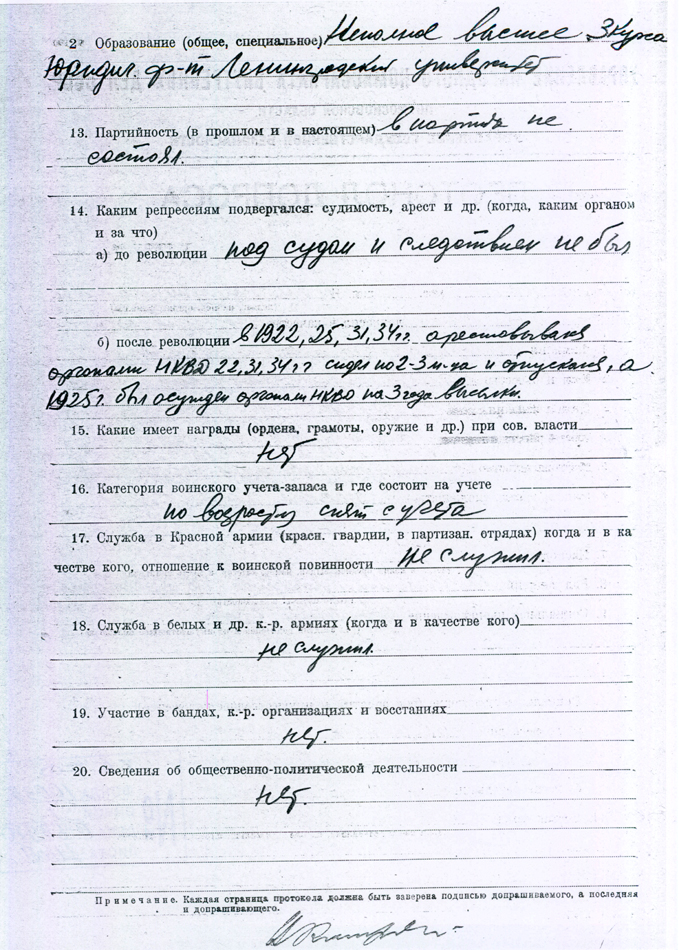 2 Образование (общее, специальное) Неполное высшее 3 курса
Юридич. ф-т Ленинградский университет
13. Партийность (в прошлом и в настоящем) в партии не
состоял.
14. Каким репрессиям подвергался: судимость, арест и др. (когда, каким органом
и за что)
а) до революции под судом и следствием не был
б) после революции в 1922, 25, 31, 34 г.г. арестовывался
органами НКВД 22, 31, 34 г.г сидел по 2-3 м-ца и отпускался, а
1925 г. был осужден органами НКВД на 3 года высылки.
15. Какие имеет награды (ордена, грамоты, оружие и др.) при сов. власти
нет
16. Категория воинского учета-запаса и где состоит на учете
по возрасту снят с учета
17. Служба в Красной армии (красн. гвардии, в партизан. отрядах) когда и в ка
честве кого, отношение к воинской повинности не служил.
18. Служба в белых и др. к.-р. армиях (когда и в качестве кого)
не служил.
19. Участие в бандах, к.-р. организациях и восстаниях
нет.
20. Сведения об общественно-политической деятельности
нет.
Примечание. Каждая страница протокола должна быть заверена подписью допрашиваемого, а последняя
и допрашивающего.